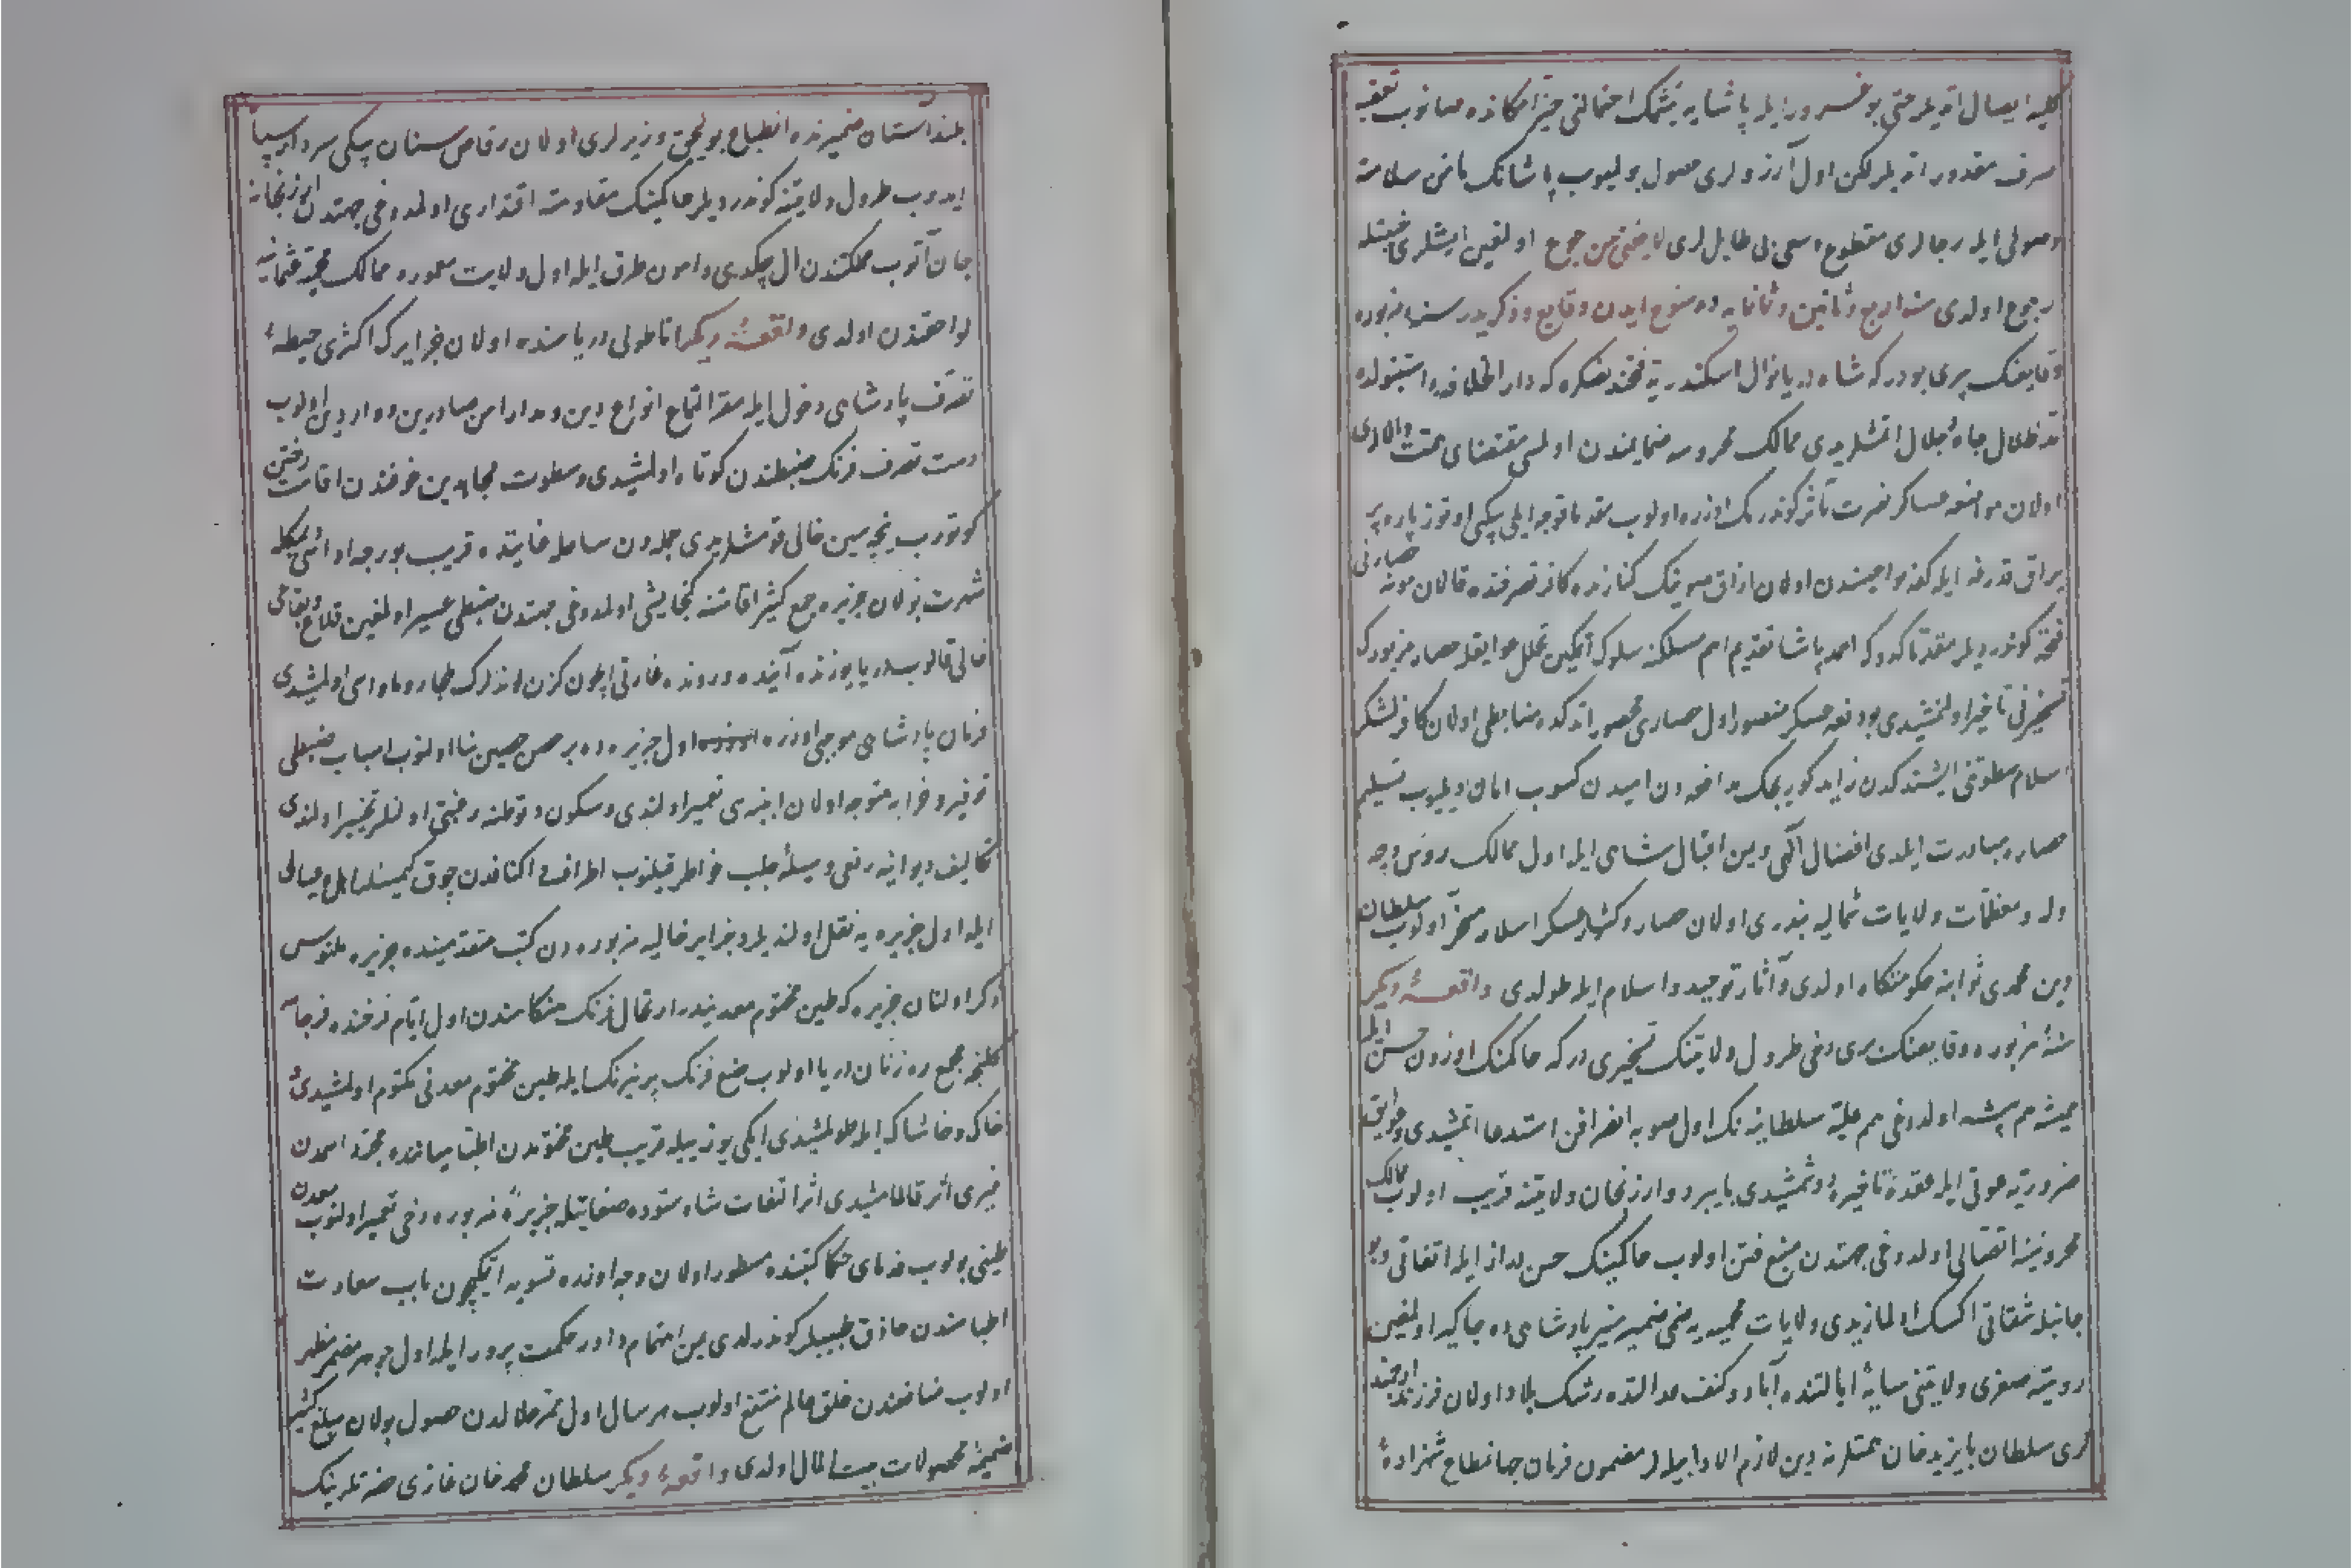 ایصال اتدیلر حتی بو غسرور ایله پاشایه یتشمک احتمالنی حیز امکانده صانوب تعقبه
صرف مقدور اتدیلر لکن اول آرزولری حصول بولمیوب پاشانک مأمن سلامته
وصولی ایله رجالری مقطوع و سعی بی طایل لری لا یغنی من جوع اولغین ایشلری خیبتله
رجوع اولدی سنه اربع وثمانین وثمانمایه ده سنوح ایدن وقایع ذکریدر سنه مزبوره
وقایعنک بری بودر که شاه دریانوال اسکندریه فتحندنصکره که دار الخلافه استنبولده
مد ظلال جاه وجلال اتمشلریدی ممالک محروسه ضمایمندن اولمسی مقتضای همت والالری
اولان مواضعه عساکر نصرت مآثر کوندرمک اوزره اولوب مقدما قوجه ایلی بیکی اوتوز پاره پر
یراق قدرغه ایله کفه نواحیسندن اولان ازاق صوینک کنارنده کافر تصرفنده قالان حصارنی
فتحه کوندردیلر مقدما کدوک احمد پاشا تقدیم اهم مسلکنه سلوک اتمکین تخلل عوایقله حصار مزبورک
تسخیرنی تأخیر اولنمشیدی بو دفعه عسکر منصور اول حصاری محصور اتدکده ضابطی اولان کافر لشکر
اسلام سطوتنی ایشتدکدن زاید کوریجک مدافعه دن امیدن کسوب امان دیلیوب تسلیم
حصاره مبادرت ایلدی افضال الهی و یمن اقبال شاهی ایله اول ممالک روس و چه
وله و معظمات ولایات شمالیه بندری اولان حصار وکشاد عسکر اسلام مسخر اولوب سلطان
دین محمدی نوابنه حکومتکاه اولدی و آثار توحید و اسلام ایله طولدی واقعهٔ دیکر
سنهٔ مزبوره وقایعنک بری دخی طرول ولایتنک تسخیری در که حاکمنک اوزون حسن ایله
همیشه هم پیشه اولدوغی همم علیهٔ سلطانینک اول صوبه انصرافن استدعا اتمشیدی و عوایق
ضروریه عوقی ایله عقدهٔ تأخیره دوشمشیدی بایبرد و ارزنجان ولایتنه قریب اولوب ممالک
محروسه‌یه اتصالی اولدوغی جهتدن منبع فتن اولوب حاکمینک حسن دراز ایله اتفاقی و بو
جانبله شقاقی اکسک اولمازیدی ولایات محمیه‌یه ضمی ضمیر منیر پادشاهی ده جایکیر اولمغین
رومیهٔ صغری ولایتنی سایهٔ ایالتنده آباد و کنف عدالتده رشک بلاد اولان فرزند ارجمند
لری سلطان بایزید خان همتلرنه دین لازم الادا بیلدلر مضمون فرمان جهانمطاع شهزادهٔ
بلند آستان ضمیرنده انطباع بولیجق وزیرلری اولان رقاص سنان بیکی سردار سپاه
ایدوب طرول ولایتنه کوندردیلر حاکمینک مقاومته اقتداری اولمدوغی جهتدن ارزنجانه
جان آتوب مملکتندن ال چکدی و اهون طرق ایله اول ولایت معموره ممالک محمیهٔ عثمانیه
لواحقندن اولدی واقعهٔ دیکر اناطولی دریاسنده اولان جزایرک اکثری حیطهٔ
تصرف پادشاهی دخول ایله مقر التماع انواع دین و مدار امن صادرین و واردین اولوب
دست تصرف فرنک ضبطندن کوتاه اولمشیدی و سطوت مجاهدین خوفندن اقامت رختن
کوتورب نیجه‌سین خالی قومشلریدی جمله‌دن ساحله غایتده قریب بورجه اداسی دیمکله
شهرت بولان جزیره جمع کثیر اقامتنه کنجایشی اولمدوغی جهتدن ضبطی عسیر اولمغین قلاع و بقاعی
خالی قالوب دریا یوزنده آینده و رونده غارتی ایچون کزن لوندلرک ملجأ و مأواسی اولمشیدی
فرمان پادشاهی موجبی اوزره اول جزیره ده بر حصن حصین بنا اولنوب اسباب ضبطی
توفیر و خرابه متوجه اولان ابنیه‌سی تعمیر اولندی و سکون و توطنه رغبتی اولنلر تخییر اولندی
تکالیف دیوانیه رفعی وسیلهٔ جلب خواطر قیلنوب اطراف و اکنافدن چوق کیمسنلر اهل و عیالی
ایله اول جزیره‌یه نقل اولندیلر و جزایر خالیه مزبوره دن کتب متقدمینده جزیره ملنوس
ذکر اولنان جزیره که طین مختوم معدنیدر ارتحال فرنک هنکامندن اول ایام فرخنده فرجامه
کلنجه مجمع رهزنان دریا اولوب صنع فرنک پر نیرنک ایله طین مختوم معدنی مکتوم اولمشیدی
خاک و خاشاک ایله طولمشیدی ایکی یوز ییله قریب طین مختومدن اطبا میاننده مجرد اسمدن
غیری اثر قالمامشیدی اثر التفات شاه ستوده صفاتیله جزیرهٔ مزبوره دخی تعمیر اولنوب معدن
طینی بولوب قدمای حکما کتبنده مسطور اولان وجه اوزره تسویه اتمکیچون باب سعادت
اطباسندن حاذق طبیبلر کوندرلدی یمن اهتمام داور حکمت پرور ایله اول جوهر مضمر مظهر
اولوب منافعندن خلق عالم منتفع اولوب هر سال اول ممر حلالدن حصول بولان مبلغ کثیر
ضمیمهٔ محصولات بیت المال اولدی واقعهٔ دیکر سلطان محمد خان غازی حضرتلرینک